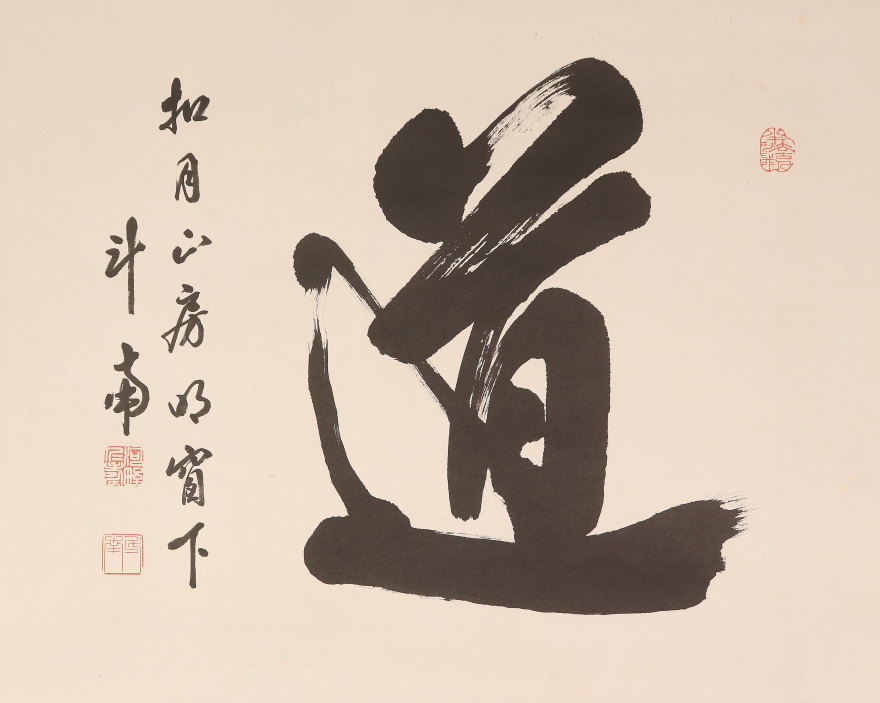 道
扣月山房明窗下
斗南